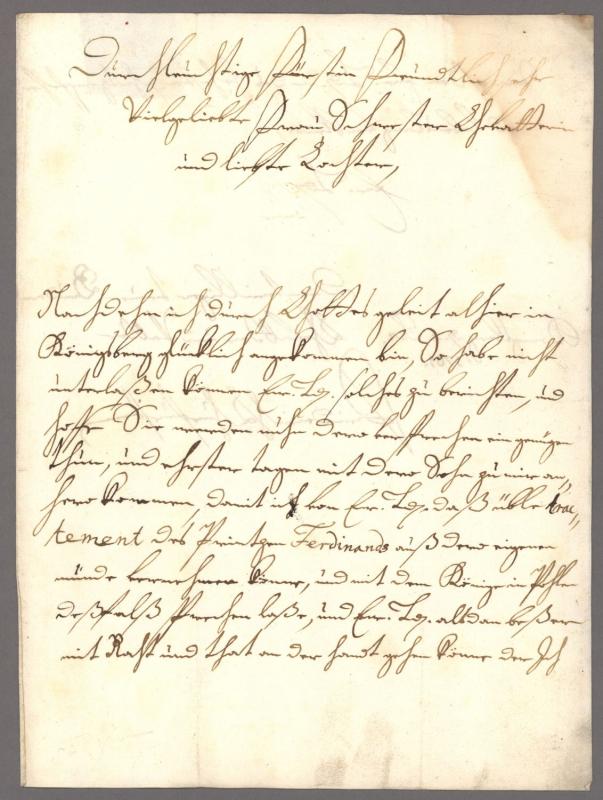 Durchleuchtige Fürstin Freundtlich sehr
Vielgeliebte Frau Schwester Gevatterin
und liebste Tochter,
Nachdehm ich durch Gottes geleit alhier in
Königsberg glücklich angekommen bin, So habe nicht
unterlaßen können Ew. Ld. solches zu berichten, und
hoffe Sie werden nuhn dero versprechen ein genügen
thun, und ehrster tagen mit dero Sohn zu mir an„
hero kommen, damit ich von Ew. Ld. daß üble trac„
tement des Printzen Ferdinands auß dero eigenen
münde vernehmen könne, und mit dem Könige in Pohlen
deßfalß sprechen laße, und Ew. Ld. alsdan beßer
mit Raht und that an der handt gehen könne der Ich